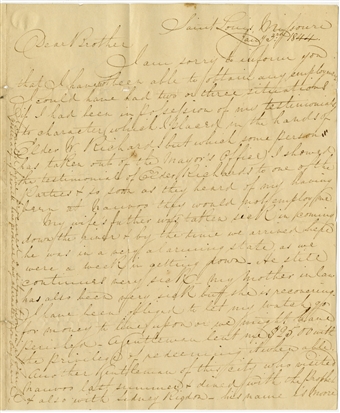 Saint Louis, Missouri
Jany 3rd 1844
Dear Brother
I am sorry to inform you
that I have not been able to obtain any employment
I could have had two or three situations
if I had been in possession of my testimonials
to character which I placed in the hands of
Elder W. Richards, but which some person
has taken out of the Mayor's Office. I showed
the testimonials of Elder Richards to one of the
Parties & so soon as they heard of my having
been at Nauvoo they would not employ me
My wife's father was taken sick in coming
down the river & by the time we arrived here
he was in a very alarming state as we
were a week in getting down. He still
continues very sick. My Mother in law
has also been very sick but she is recovering
I have been obliged to let my watch go
for money to live upon or we might have
A Gentleman lent me $25.00 with
the privilege of redeeming it when able
Another Gentleman of this city who visited
Nauvoo last summer & dined with the Prophet
& also with Sidney Rigdon his name is Moore